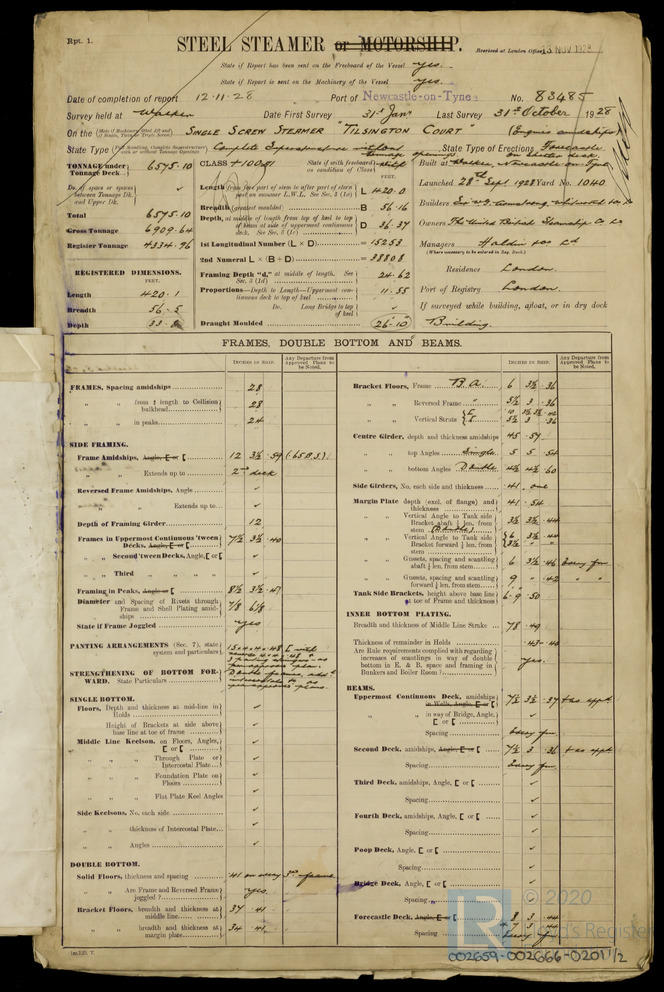 Rpt. 1.
STEEL STEAMER or MOTORSHIP.
Received at London Office 13 NOV 1928
State if Report has been sent on the Freeboard of the Vessel yes.
State if Report is sent on the Machinery of the Vessel yes.
Date of completion of report 12.11.28 Port of Newcastle-on-Tyne No. 83485
Survey held at Walker Date First Survey 31st Jany Last Survey 31st October 1928
On the SINGLE SCREW STEAMER "TILSINGTON COURT" (Engines amidships)
State Type Complete Superstructure without tonnage openings State Type of Erections Forecastle on shelter deck.
TONNAGE under Tonnage Deck 6575.10
CLASS +100A1 State if with freeboard as condition of Class
Built at Walker, Newcastle on Tyne
Do. of space or spaces between Tonnage Dk. and Upper Dk.
Length L 420.0
Launched 28th Sept 1928 Yard No. 1040
Total 6575.10
Breadth (greatest moulded) B 56.16
Builders Sir W.G. Armstrong Whitworth
Gross Tonnage 6909.64
Depth, at middle of length from top of keel to top of beam at side of uppermost continuous deck. D 36.37
Owners The United British Steamship Co Ld
Register Tonnage 4334.96
1st Longitudinal Number (L × D) = 15253
Managers Haldin & Co Ld
2nd Numeral L × (B + D) = 38808
REGISTERED DIMENSIONS.
FEET.
Framing Depth "d," at middle of length. 24.62
Residence London.
Length 420.1
Proportions—Depth to Length—Uppermost continuous deck to top of keel 11.55
Port of Registry London.
Breadth 56.5
Do. Long Bridge to top of keel
If surveyed while building, afloat, or in dry dock
Depth
Draught Moulded 26.10
Building.
FRAMES, DOUBLE BOTTOM AND BEAMS.
INCHES IN SHIP. Any Departure from Approved Plans to be Noted.
FRAMES, Spacing amidships 28
" " from ⅕ length to Collision bulkhead 28
" " in peaks 24
SIDE FRAMING.
Frame Amidships, Angle, E or [ 12 3½ .59
" " Extends up to 2nd deck
Reversed Frame Amidships, Angle ✓
" " Extends up to ✓
Depth of Framing Girder 12
Frames in Uppermost Continuous 'tween Decks, Angle, E or [ 7½ 3½ .40
" Second 'tween Decks, Angle, [ or [ ✓
" Third " " " " ✓
Framing in Peaks, Angle or [ 8½ 3½ .47
Diameter and Spacing of Rivets through Frame and Shell Plating amidships 7/8 6⅛
State if Frame Joggled yes
PANTING ARRANGEMENTS (Sec. 7), state system and particulars
STRENGTHENING OF BOTTOM FORWARD. State Particulars
SINGLE BOTTOM.
Floors, Depth and thickness at mid-line in Holds ✓
Height of Brackets at side above base line at toe of frame ✓
Middle Line Keelson, on Floors, Angles, [ or [ ✓
" " Through Plate or Intercostal Plate ✓
" " Foundation Plate on Floors ✓
" " Flat Plate Keel Angles ✓
Side Keelsons, No. each side ✓
" " thickness of Intercostal Plate ✓
" " Angles ✓
DOUBLE BOTTOM.
Solid Floors, thickness and spacing .41 on every 3rd frame
" " Are Frame and Reversed Frame joggled? yes.
Bracket Floors, breadth and thickness at middle line 37 .41
" " breadth and thickness at margin plate 34 .41
Bracket Floors, Frame B.A. 6 3½ .36
" " Reversed Frame " 5½ 3 .36
" " Vertical Struts
Centre Girder, depth and thickness amidships 45 .57
" " top Angles Single 5 5 .54
" " bottom Angles Double 4½ 4½ .60
Side Girders, No. each side and thickness .41 one
Margin Plate depth (excl. of flange) and thickness 41 .54
" " Vertical Angle to Tank side Bracket abaft ¼ len. from stem (Double) 3½ 3½ .44
" " Vertical Angle to Tank side Bracket forward ¼ len. from stem
" " Gussets, spacing and scantling abaft ¼ len. from stem 6 3½ .46 Every fm
" " Gussets, spacing and scantling forward ¼ len. from stem 9 " .42 " "
Tank Side Brackets, height above base line at toe of Frame and thickness 6.9 .50
INNER BOTTOM PLATING.
Breadth and thickness of Middle Line Strake 78 .49
Thickness of remainder in Holds .43 .40
Are Rule requirements complied with regarding increases of scantlings in way of double bottom in E. & B. space and framing in Bunkers and Boiler Room? yes.
BEAMS.
Uppermost Continuous Deck, amidships in Wells, Angle, E or [ 7½ 3½ .37 + as appd
" " in way of Bridge, Angle, [ or [ ✓
Spacing Every fm
Second Deck, amidships, Angle, E or [ 7½ 3 .36 + as appd
Spacing Every fm
Third Deck, amidships, Angle, [ or [ ✓
Spacing ✓
Fourth Deck, amidships, Angle, [ or [ ✓
Spacing ✓
Poop Deck, Angle, [ or [ ✓
Spacing ✓
Bridge Deck, Angle, [ or [ ✓
Spacing ✓
Forecastle Deck, Angle, E or [ 8 3 .44
Spacing every fm
LR © 2020
Lloyd's Register
002659-002666-0201 1/2